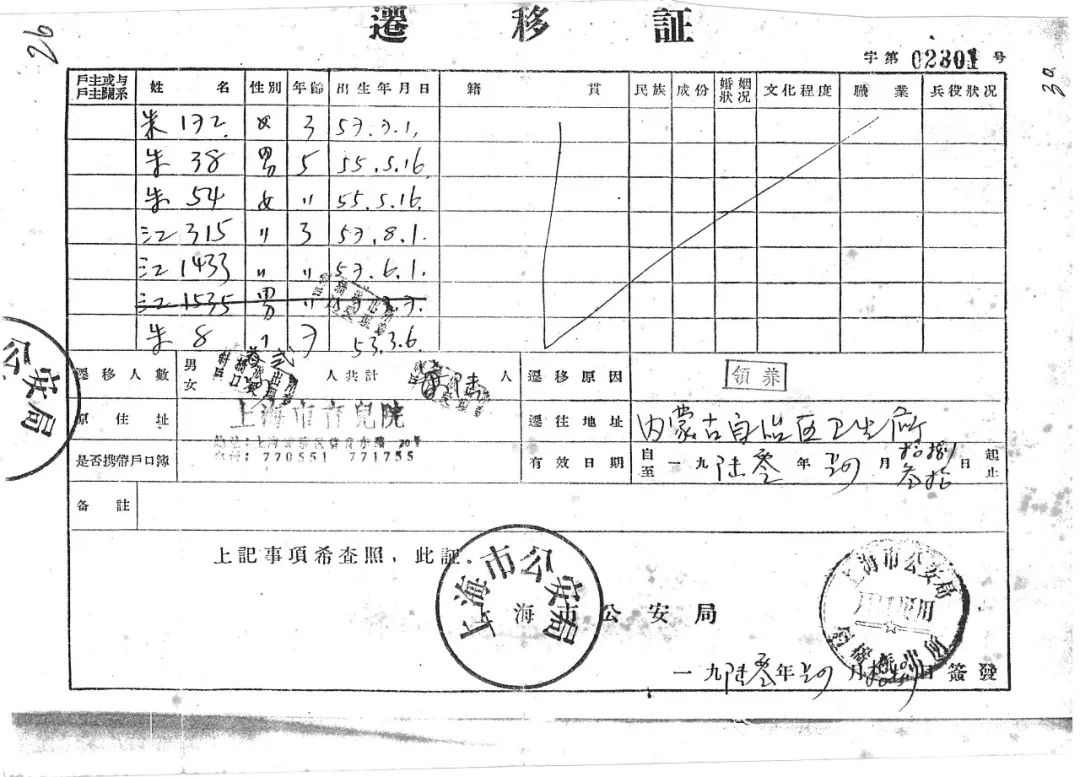 26
遷移証
字第 02301 号
30
戶主或与戶主關系 姓名 性別 年齡 出生年月日 籍貫 民族 成份 婚姻狀况 文化程度 職業 兵役狀况
朱 172. 女 3 57.7.1.
朱 38 男 5 55.5.16.
朱 54 女 〃 55.5.16.
江 315 〃 3 57.8.1.
江 1433 〃 〃 57.6.1.
江 1535 男 〃
朱 8 〃 7 53.3.6.
遷移人数 男 女 人共計 人 遷移原因 領养
原住址 上海市育兒院 20号 遷往地址 内蒙古自治区卫生厅
770551 771755
是否携帶戶口簿 有效日期 自至一九陆零年 月 日起止
备註
上記事項希查照，此証.
上海市公安局
上海市公安局
公安局
上海市公安局
一九陆零年 月 日簽發